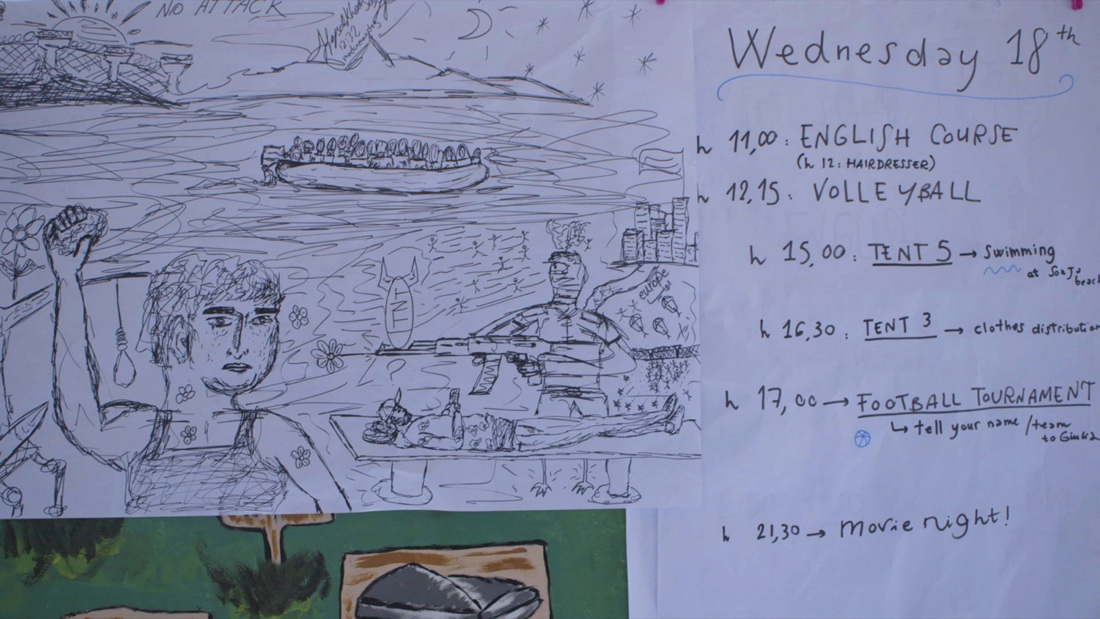 NO ATTACK
europe
Wednesday 18th
h 11,00: ENGLISH COURSE
(h 12: HAIRDRESSER)
h 12,15: VOLLEYBALL
h 15,00: TENT 5 → Swimming
at beach
h 16,30: TENT 3 → clothes distribution
h 17,00 → FOOTBALL TOURNAMENT
↳ tell your name/team
to
h 21,30 → movie night!